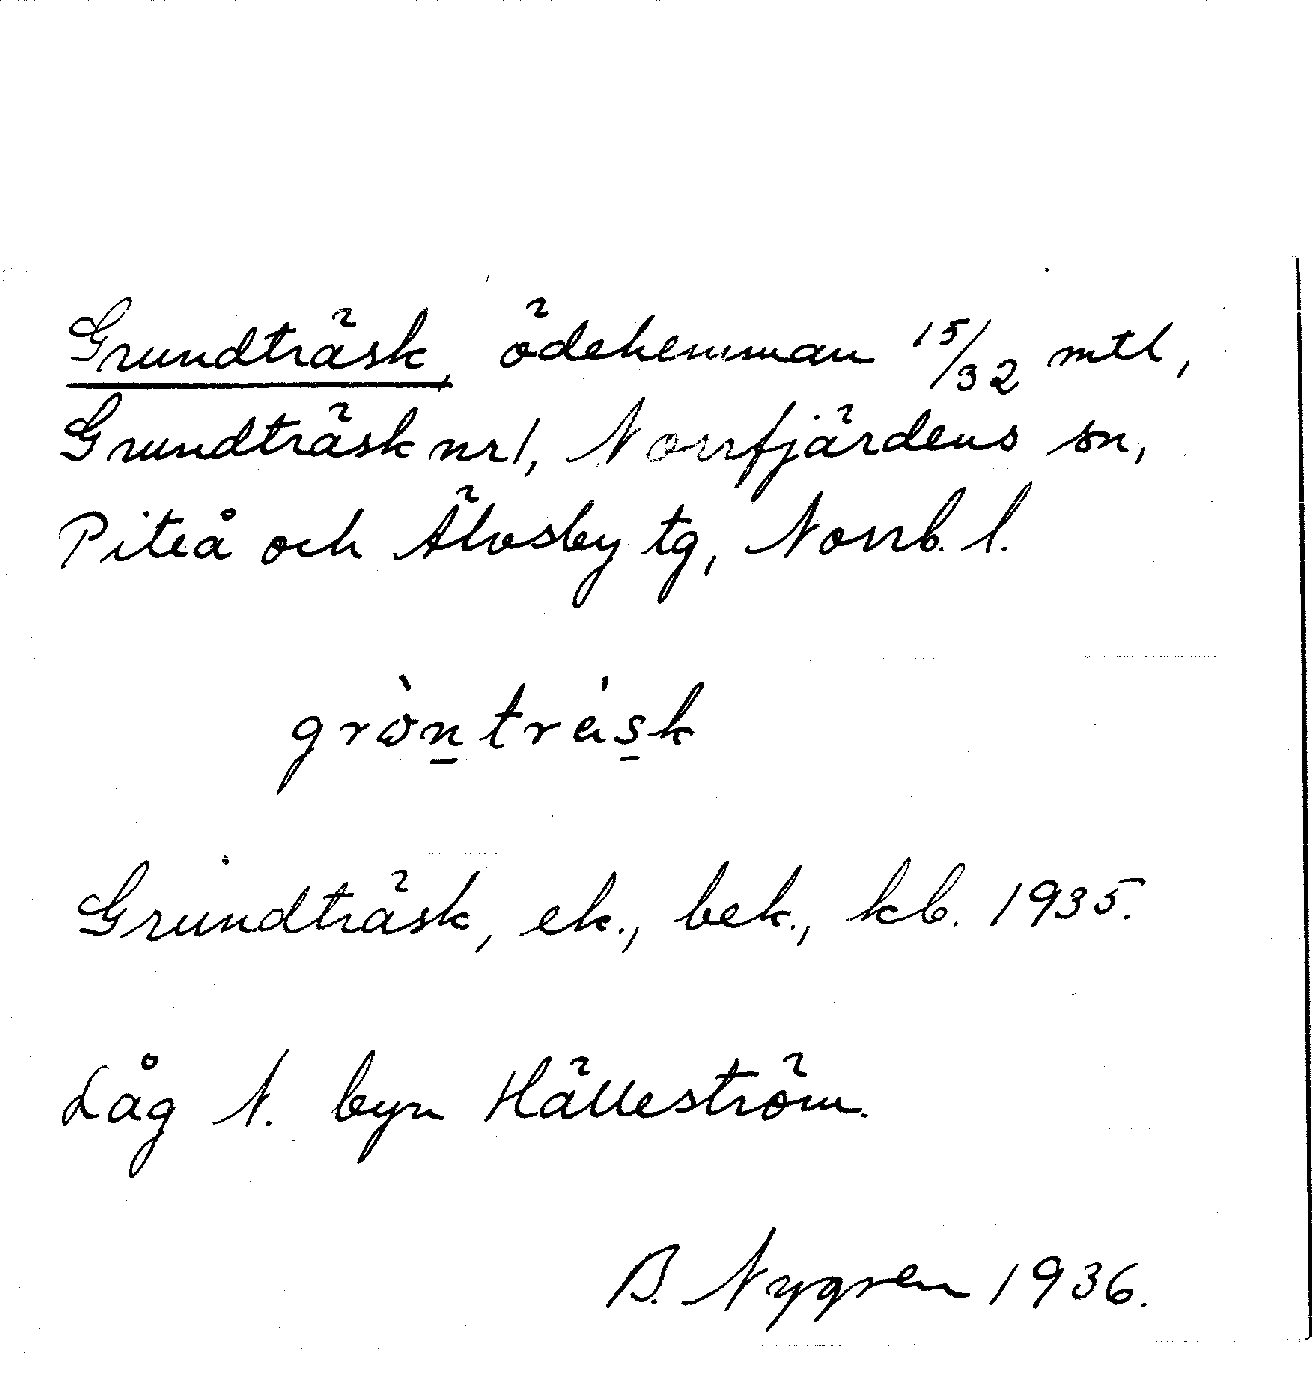 Grundträsk, ödehemman 15/32 mtl,
Grundträsk nr 1, Norrfjärdens sn,
Piteå och Älvsby tg, Norrb. l.
grònträsk
Grundträsk, ek., bek., kb. 1935.
Låg N. byn Hälleström.
B. Nygren 1936.